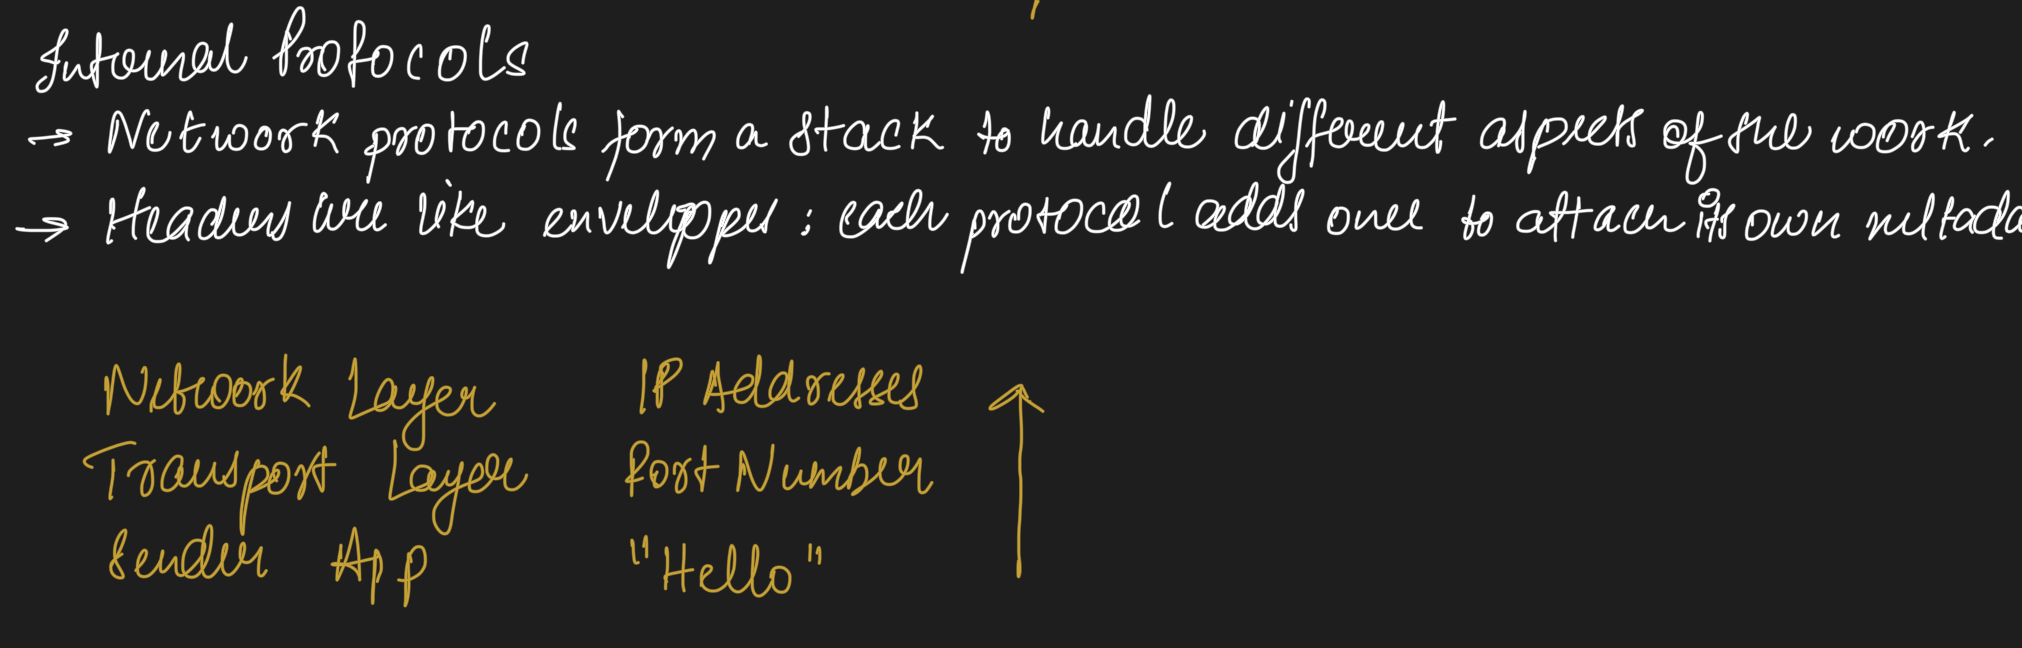 Internal Protocols
→ Network protocols form a stack to handle different aspects of the work.
→ Headers are like envelopes : each protocol adds one to attach its own metada
Network Layer IP Addresses
Transport Layer Port Number
Sender App "Hello"